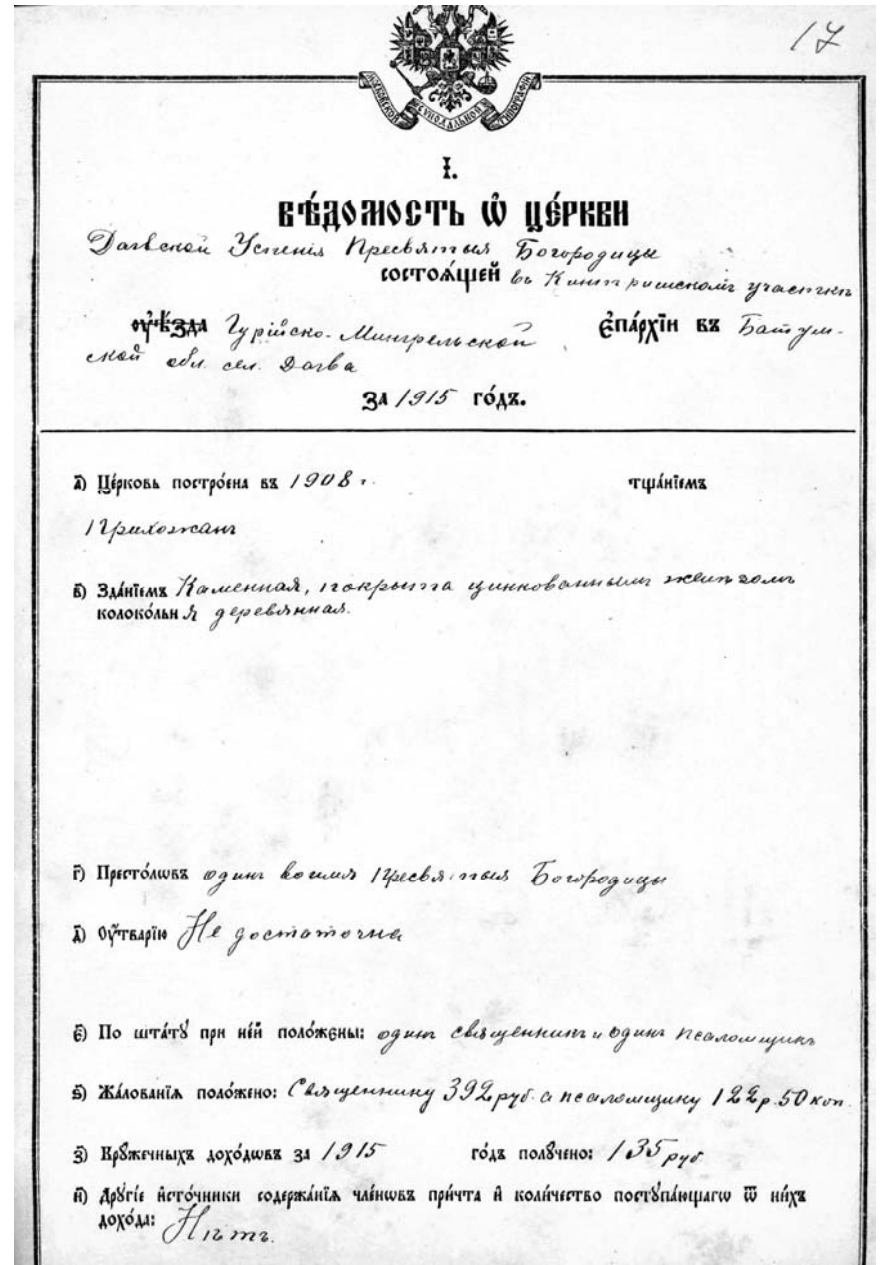 17
МОСКОВСКОЙ СѴНОДАЛЬНОЙ ТИПОГРАФІИ
І.
ВѢ́ДОМОСТЬ Ѡ҆ ЦЕ́РКВИ
Дагвской Успенія Пресвятыя Богородицы
состоѧ́щей въ Кинтришскомъ участкѣ
ᲂу҆ѣ́зда Гурійско-Мингрельской є҆па́рхїи въ Батум-
ской обл. сел. Дагва
За 1915 го́дъ.
а҃) Це́рковь постро́ена въ 1908 г. тща́нїемъ
Прихожанъ
в҃) Зда́нїемъ Каменная, покрыта цинкованнымъ желѣзомъ
колоко́льня деревянная.
г҃) Престо́лѡвъ одинъ во имя Пресвятыя Богородицы
д҃) Оу҆́тварїю Не достаточна
є҃) По шта́тꙋ при не́й поло́жены: одинъ священникъ и одинъ псаломщикъ
ѕ҃) Жа́лованїѧ поло́жено: Священнику 392 руб. а псаломщику 122 р. 50 коп.
з҃) Крꙋ́жечныхъ дохо́дѡвъ за 1915 го́дъ полꙋ́чено: 135 руб
и҃) Дрꙋгі́е и҆сто́чники содержа́нїѧ чле́нѡвъ при́чта и҆ коли́чество постꙋпа́ющагѡ ѿ ни́хъ
дохо́да: Нѣтъ.